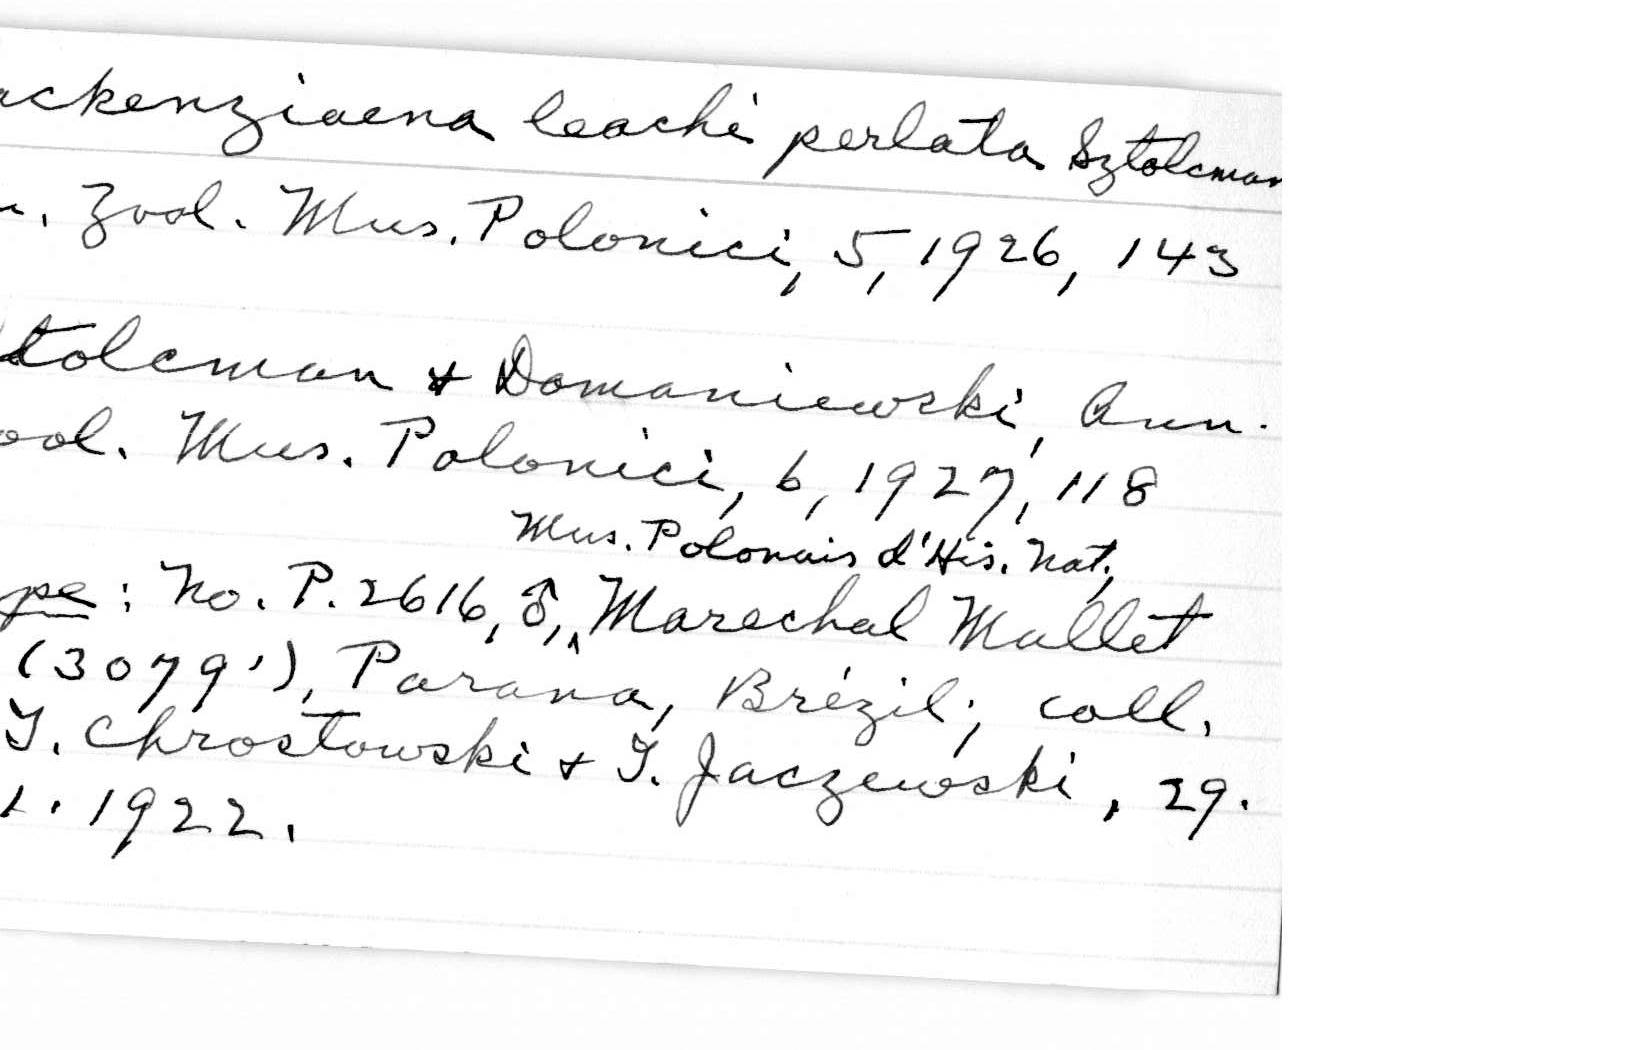 ackenziaena leachi perlata Sztolcman
n. Zool. Mus. Polonici, 5, 1926, 143
tolcman & Domaniewski, Ann.
ool. Mus. Polonici, 6, 1927, 118
Mus. Polonais d'His. Nat.,
pe: No. P. 2616, ♂, ^ Marechal Mallet
(3079'), Parana, Brézil; coll.
T. Chrostowski & T. Jaczewski, 29.
1. 1922.